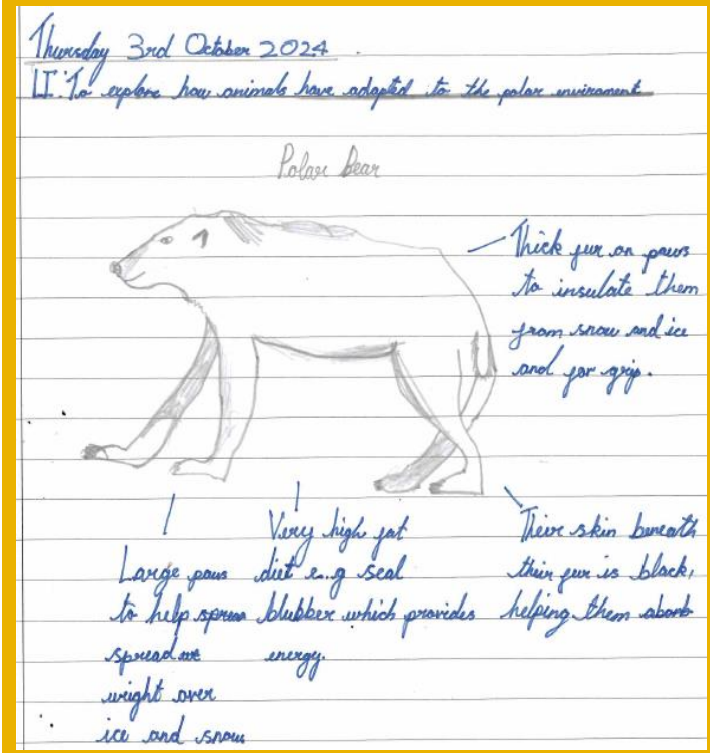 Thursday 3rd October 2024.
LI: To explore how animals have adapted to the polar enviroment
Polar Bear
Thick fur on paws
to insulate them
from snow and ice
and for grip.
Large paws
to help sprea
spread we
weight over
ice and snow
Very high fat
diet e.g seal
blubber which provides
energy.
Their skin beneath
their fur is black,
helping them absorb